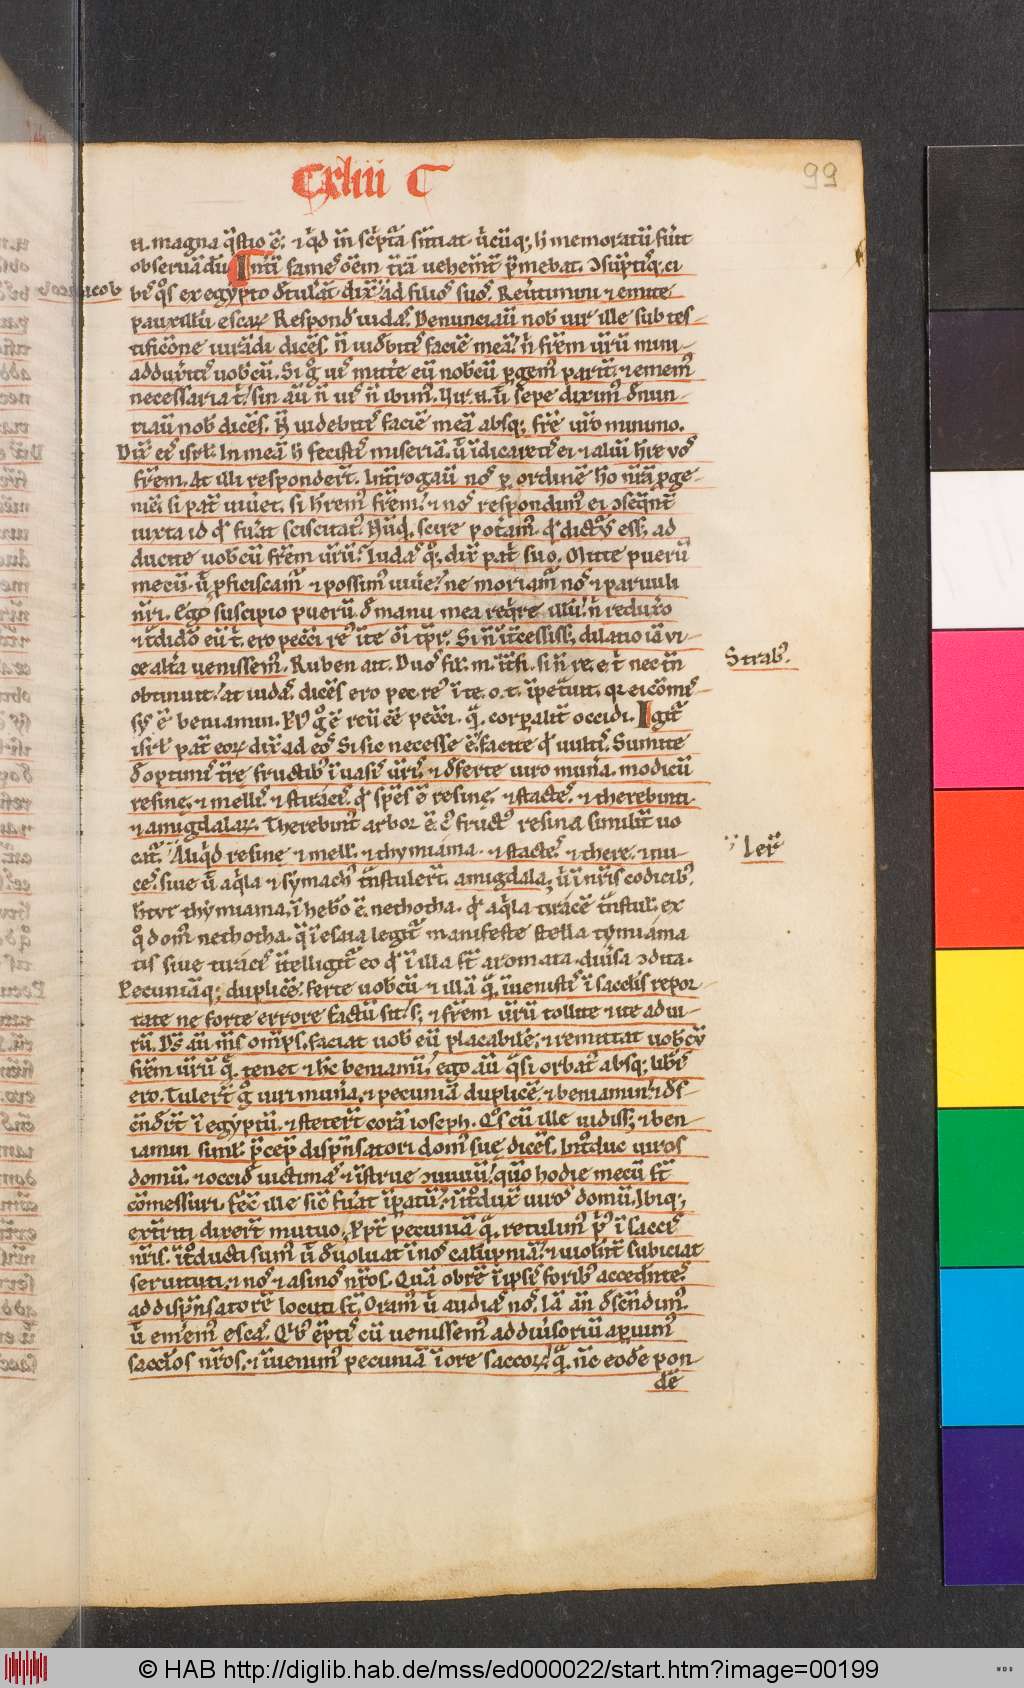 Cxliii C
99
n. magna q̄stio ē. ⁊ q̄d in sc̄pta sn̄tiat ūcūq; h memoratū fuit
obseruādū Int̄i fames oēm t̄rā uehemēt̄ p̄mebat. ɔsūptisq; ci
bis q̄s ex egypto detulāt dix̄ ad filios suos. Reūtimini ⁊ emite
pauxillū escarꝝ Respond̄ iudas. Denunciau̅ nob̄ uir ille sub tes-
tificōne iurādi dicēs. n̄ uidbitis faciē meā. n̄ fr̄em ūrū mini-
adduxitis uobcū. Si ḡ uis mitte̅ eū nobcū p̄gem⁹ parit̄. ⁊ emem⁹
necessaria t̄. sin aū n̄ uis n̄ ibim⁹. Vir. n. ū sepe dixim⁹ d̄nun-
tiau̅ nob̄ dicēs. N̄ uidebitis faciē meā absq; fr̄e ūro minimo.
Dix̄ eis isrl̄. In meā h fecistis miseriā. ū idicaretis ei ⁊ aliū hr̄e uos
fr̄em. At illi responder̄t. Int̄rogau̅ nos p ordinē
niē. si pat̄ uiuet. si hr̄em⁹ fr̄em. ⁊ nos respondim⁹ ei ɔseqn̄t̄
iuxta id q̄ fuāt sciscitat⁹. Nūq̄d scire potām⁹ q̄ dict⁹ eēt. ad
ducite uobcū fr̄em ūrū. Iudas q̄q; dix̄ pat̄ suo. Mitte puerū
mecū. ū p̄ficiscam̄ ⁊ possim⁹ uiue̅. ne moriam̄ nos ⁊ paruuli
nr̄i. Ego suscipio puerū. d̄ manu mea req̄re illū. n̄ reduxo
⁊ t̄dido eū t̄. ero pecc̄i re⁹ ī te oī tp̄r. Si n̄ īt̄cessiss̄. dilatio iā ui-
ce alt̄a uenissem⁹. Ruben ait. Duos fil. m. īt̄fi. si n̄ re. e. t̄ nec tn̄
obtinuit. at iudas dicēs ero pec re⁹ ī te. o. t. īpetuit.
ē beniamin. ḡ ē reū eē pecc̄i. q̄. corpalit̄ occidi. Igit̄
isrl̄ pat̄ eorꝝ dix̄ ad eos Si sic necesse ē. facite q̄ uultis. Sumite
d̄ optimis t̄re fructib⁹ ī uasis ūris. ⁊ d̄ferte uiro mun̄a. modicū
resine. ⁊ mellis ⁊ stiracis. q̄ sp̄es ē resine. ⁊ stactes. ⁊ therebinti.
⁊ amigdalarꝝ. Therebint⁹ arbor ē. c⁹ fruct⁹ resina similit̄ uo
cat̄. Aliq̄d resine ⁊ mell̄. ⁊ thymiama. ⁊ stactes. ⁊ there. ⁊ nu-
ces. siue ū aq̄la ⁊ symach⁹ t̄nstuler̄t. amigdala. ū ī nr̄is codicib⁹
hr̄ thymiama. ī hebo ē. nethotha. q̄ aq̄la tiracē t̄nstul̄. ex
q̄ dom⁹ nethotha. q̄ ī esaia legit̄ manifeste stella tymiama
tis siue tiracis īt̄elligit̄ eo q̄ ī illa st̄ aromata. diūsa ɔdita.
Pecuniāq; duplicē ferte uobcū ⁊ illā q̄. īuenistis ī sacclis repor-
tate ne forte errore factū sit. s; ⁊ fr̄em ūrū tollite ⁊ ite ad ui-
rū. Ds̄ aū m̄s om̄ps. faciat uob̄ eū placabilē. ⁊ remittat uobcū
fr̄em ūrū q̄. tenet ⁊ hc̄ beniamī. ego aū q̄si orbat⁹ absq; lib̄is
ero. Tuler̄t ḡ uiri mun̄a. ⁊ pecuniā duplicē. ⁊ beniamin. ⁊ d̄s-
cēdr̄t ī egyptū. ⁊ steter̄t corā ioseph. Q̄s cū ille uidiss̄. ⁊ ben-
iamin simł. p̄cep̄ disp̄nsatori dom⁹ sue dicēs. Int̄duc uiros
domū. ⁊ occid̄ uictimas ⁊ īstrue ɔuiuiū. quō hodie mecū st̄
cōmessuri. Fēc̄ ille sic̄ fuāt īpatū. ⁊ īt̄odux̄ uiros domū. Ibiq;
ext̄riti dixer̄t mutuo. Ppt̄ pecuniā q̄. retulim⁹ p⁹ ī saccis
nr̄is. īt̄oducti sum⁹ ū d̄uoluat ī nos calūpniā. ⁊ uiolēt̄ subiciat
seruituti. ⁊ nos ⁊ asinos nr̄os. Quā obrē ī ipsis forib⁹ accedn̄tes
ad disp̄nsatorē locuti st̄. Oram⁹ ū audias nos. Iā an̄ d̄scēdim⁹
ū emem⁹ escas. Q̄b⁹ ēptis cū uenissem⁹ ad diūsoriū apuim⁹
saccłos nr̄os. ⁊ īuenim⁹ pecuniā ī ore saccorꝝ. q̄. nc̄ eodē pon-
dē
Strab⁹.
Ier̄
© HAB http://diglib.hab.de/mss/ed000022/start.htm?image=00199